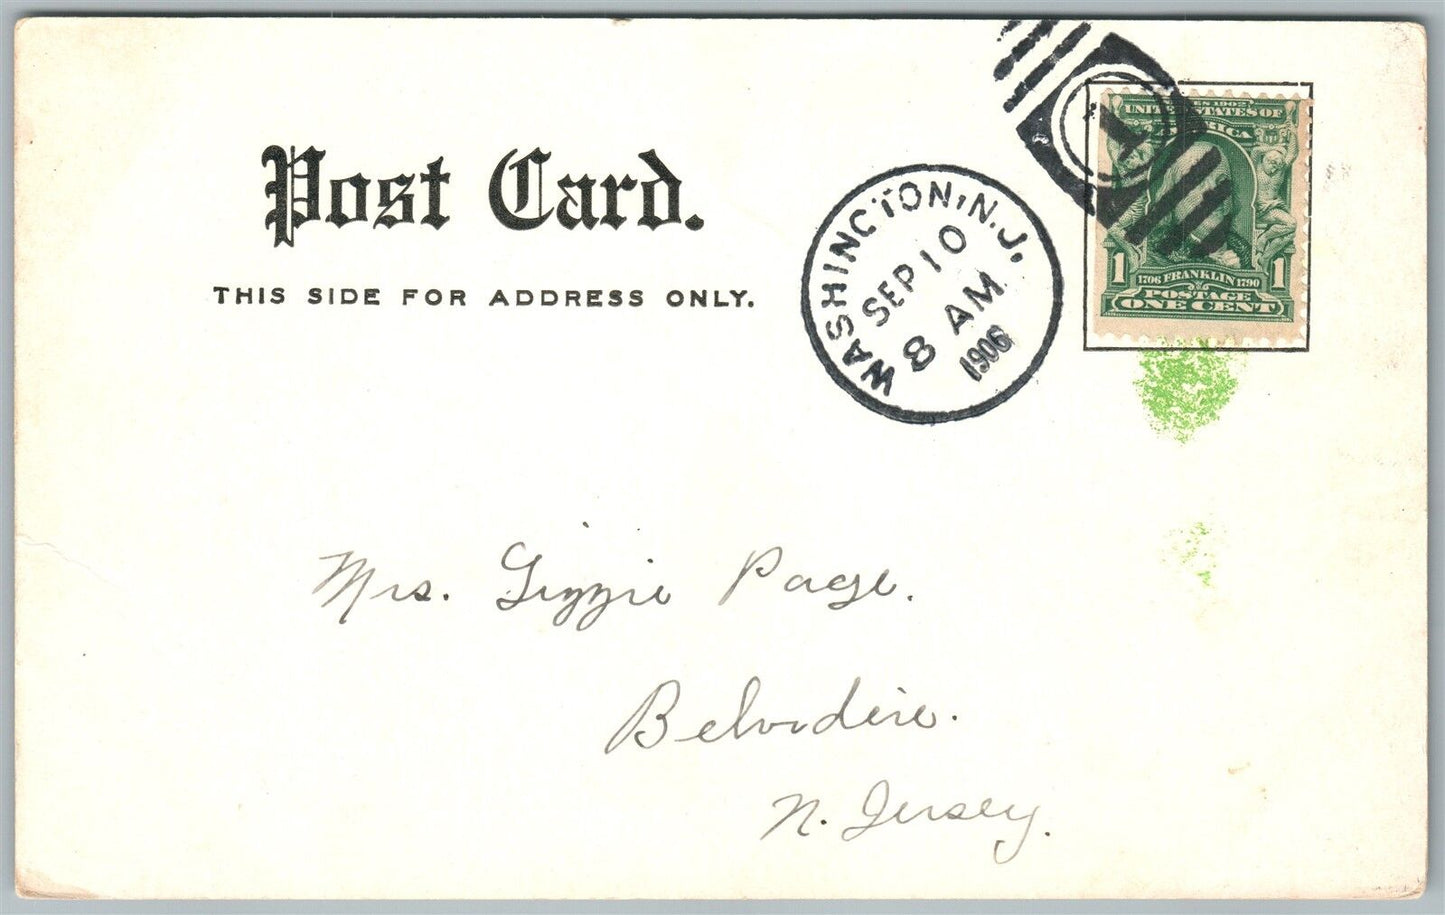 Post Card.
THIS SIDE FOR ADDRESS ONLY.
WASHINGTON, N.J.
SEP 10
8 AM
1906
1
SERIES 1902
UNITED STATES OF
AMERICA
1 1706 FRANKLIN 1790 1
POSTAGE
ONE CENT
Mrs. Lizzie Page.
Belvidere.
N. Jersey.